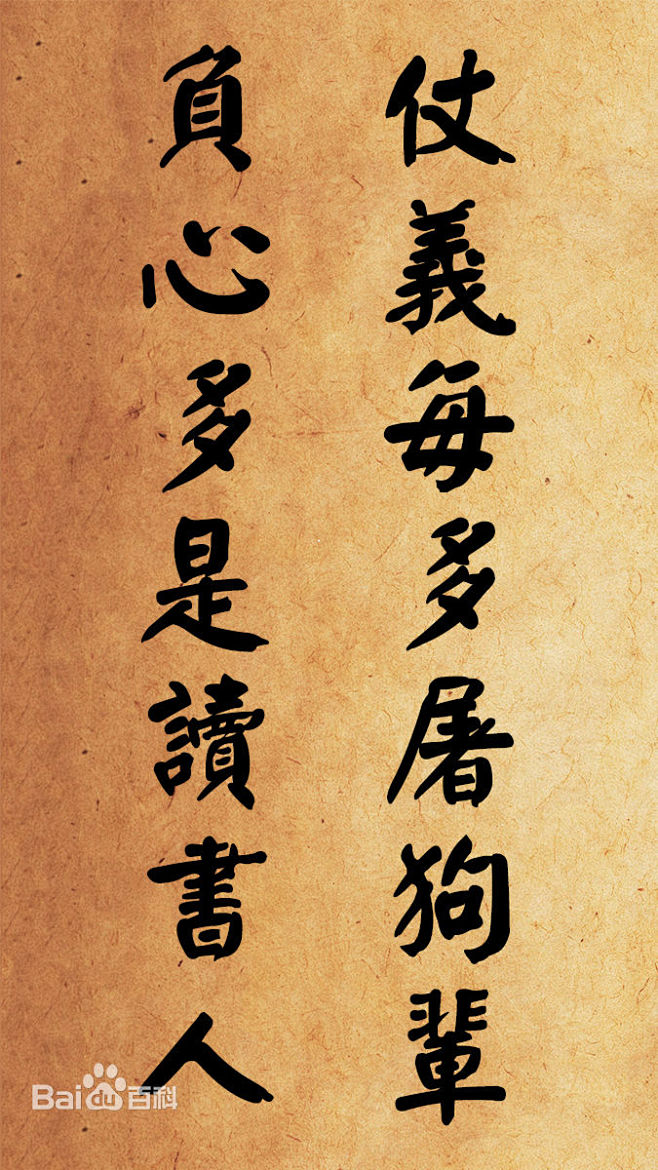 仗義每多屠狗輩
負心多是讀書人
Bai du 百科